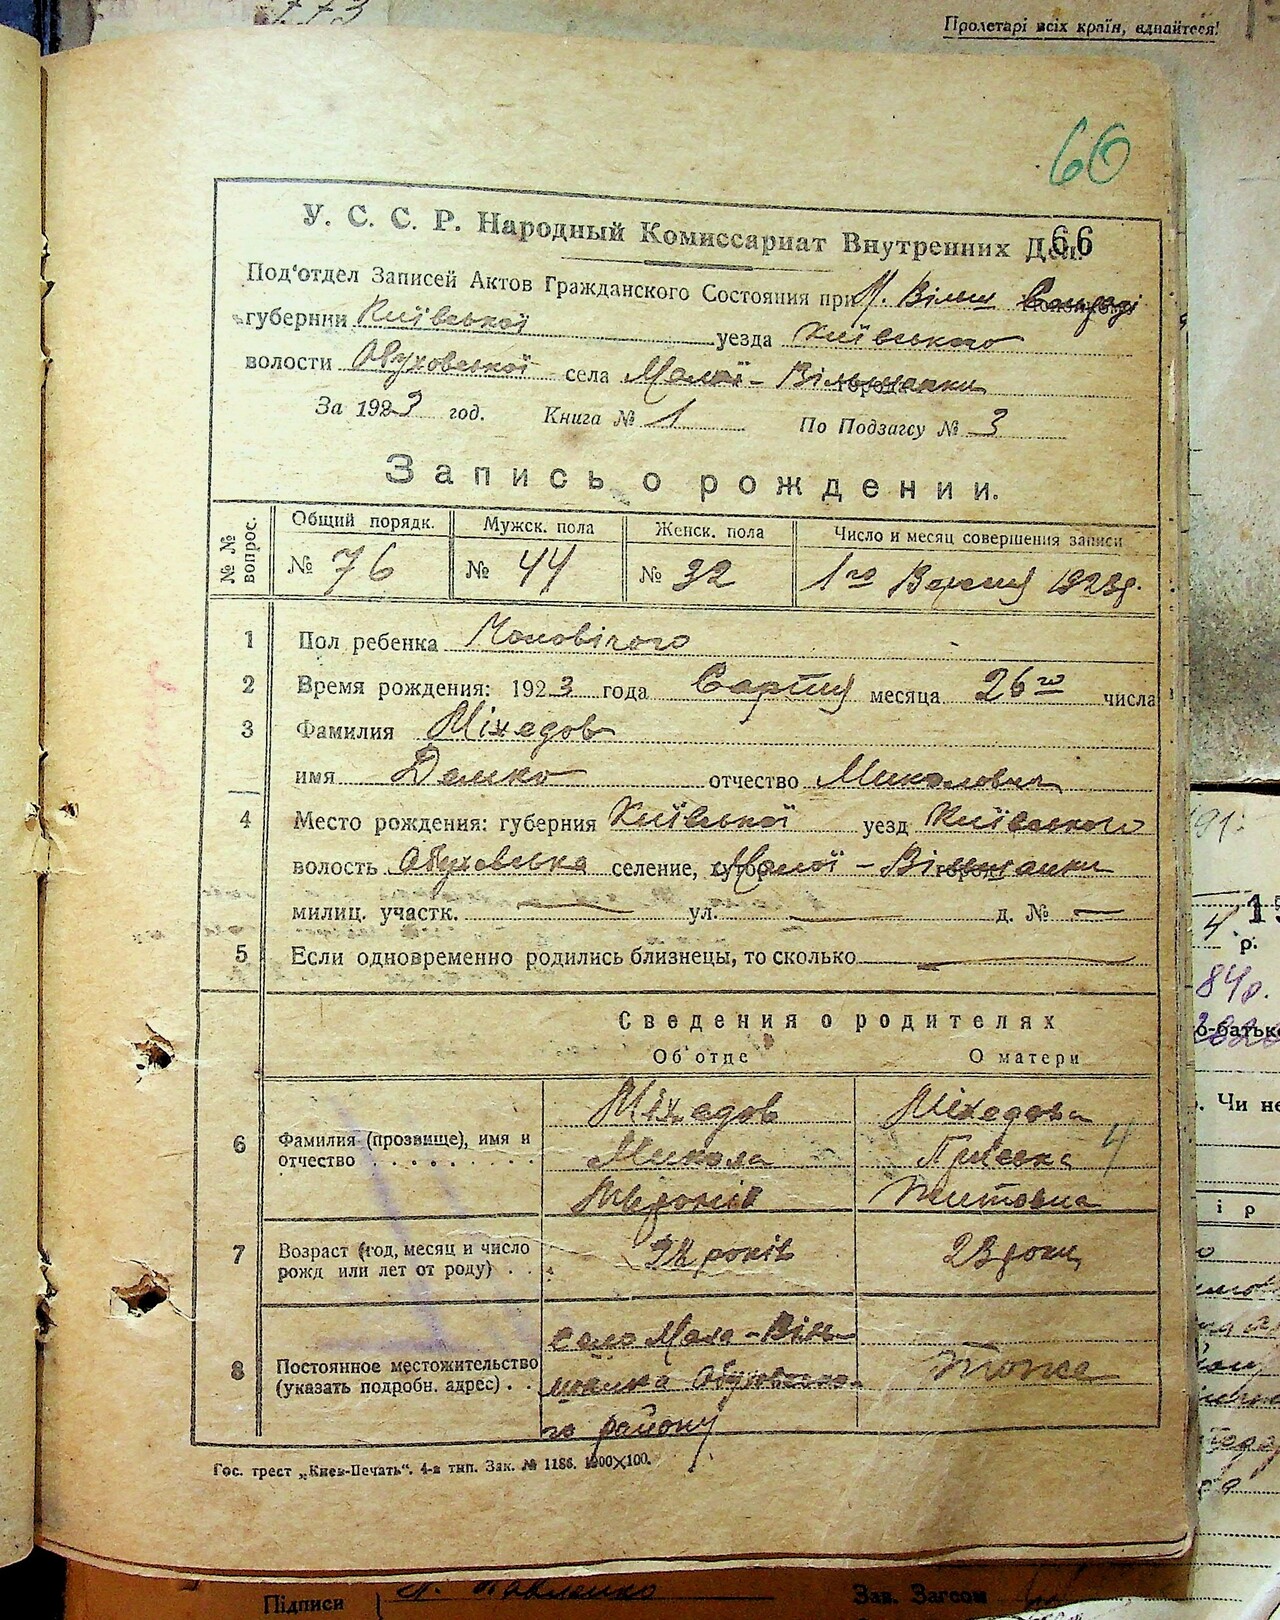 773
Пролетарі всіх країн, єднайтеся!
66
У. С. С. Р. Народный Комиссариат Внутренних Дел.
66
Под'отдел Записей Актов Гражданского Состояния при М. Вільш Сільраді
губернии Київської уезда Київського
волости Обуховської села Малої-Вільшанки
За 1923 год. Книга № 1 По Подзагсу № 3
Запись о рождении.
№ № вопрос.
Общий порядк. Мужск. пола Женск. пола Число и месяц совершения записи
№ 76 № 44 № 32 1го Вересня 1923р.
1 Пол ребенка Чоловічого
2 Время рождения: 1923 года Серпня месяца 26го числа
3 Фамилия Міхедов
имя Демко отчество Миколович
4 Место рождения: губерния Київської уезд Київського
волость Обухівська селение, Малої-Вільшанки
милиц. участк. — ул. — д. № —
5 Если одновременно родились близнецы, то сколько —
Сведения о родителях
Об'отце О матери
6 Фамилия (прозвище), имя и отчество
Міхедов Міхедова
Микола Пріська
Титовна
7 Возраст (год, месяц и число рожд или лет от роду)
років 23 роки
8 Постоянное местожительство (указать подробн. адрес)
село Мала-Віль-
шанка Обуховсько-
го району
тоже
Гос. трест „Киев-Печать". 4-я тип. Зак. № 1186. 1000×100.
Підписи Павленко Зав. Загсом
р.
84р.
о-батьков
Чи не